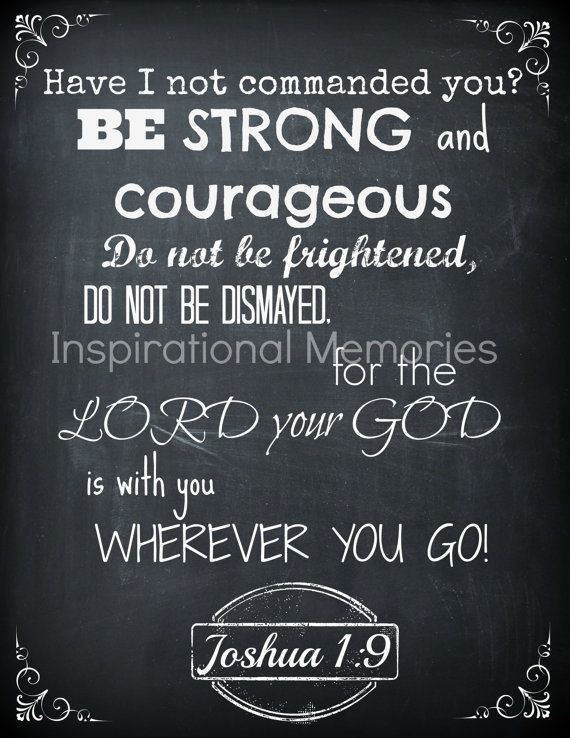 Have I not commanded you?
BE STRONG and
courageous
Do not be frightened,
DO NOT BE DISMAYED,
Inspirational Memories
for the
LORD your GOD
is with you
WHEREVER YOU GO!
Joshua 1:9